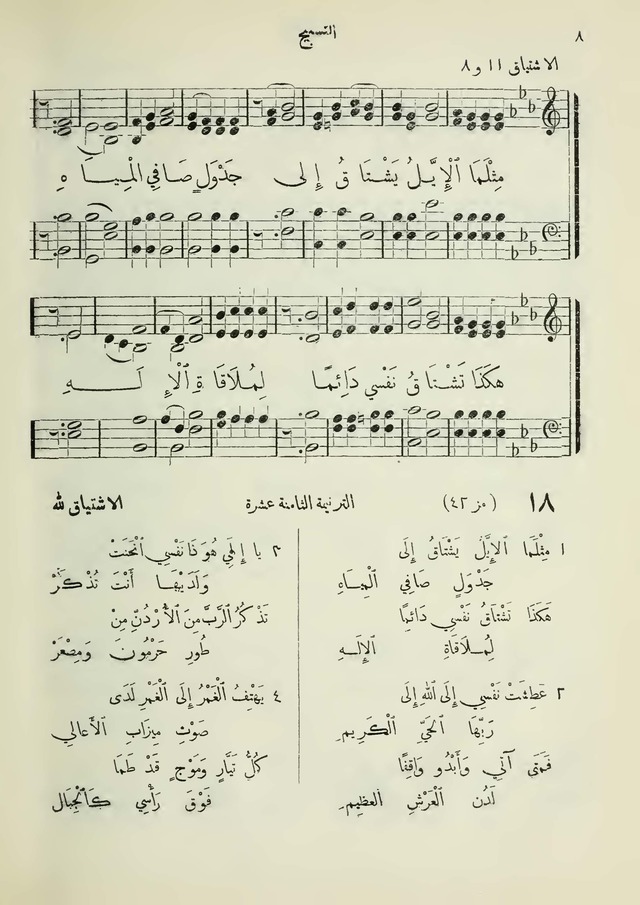 ٨
التسبيح
الاشتياق ١١ و ٨
مِثْلَمَا ٱلْإِيَّلُ يَشْتَاقُ إِلى جَدْوَلٍ صَافِي الْمِيَاهِ
هكَذَا تَشْتَاقُ نَفْسِي دَائِمًا لِمُلَاقَاةِ ٱلْإِلَــهِ
١٨ (مز ٤٢) الترنيمة الثامنة عشرة الاشتياق لله
١ مِثْلَمَا ٱلْإِيَّلُ يَشْتَاقُ إِلَى
جَدْوَلٍ صَافِي ٱلْمِيَاهِ
هَكَذَا تَشْتَاقُ نَفْسِي دَائِمًا
لِمُلَاقَاةِ ٱلْإِلَــهِ
٢ عَطِشَتْ نَفْسِي إِلَى ٱللهِ إِلَى
رَبِّهَا ٱلْحَيِّ ٱلْكَرِيمِ
فَمَتَى آتِي وَأَبْدُو وَاقِفًا
لَدُن ٱلْعَرْشِ ٱلْعَظِيمِ
٣ يا إِلهِي هُوَذَا نَفْسِي ٱنْحَنَتْ
وَلَدَيْهَا أَنْتَ تُذْكَرْ
تَذْكُرُ ٱلرَّبَّ مِنَ ٱلْأُرْدُنِّ مِنْ
طُورِ حَرْمُونَ وَمِصْعَرْ
٤ يَهْتِفُ ٱلْغَمْرُ إِلَى ٱلْغَمْرِ لَدَى
صَوْتِ مِيزَابِ ٱلْأَعالِي
كُلُّ تَيَّارٍ وَمَوْجٍ قَدْ طَمَا
فَوْقَ رَأْسِي كَٱلْجِبَال